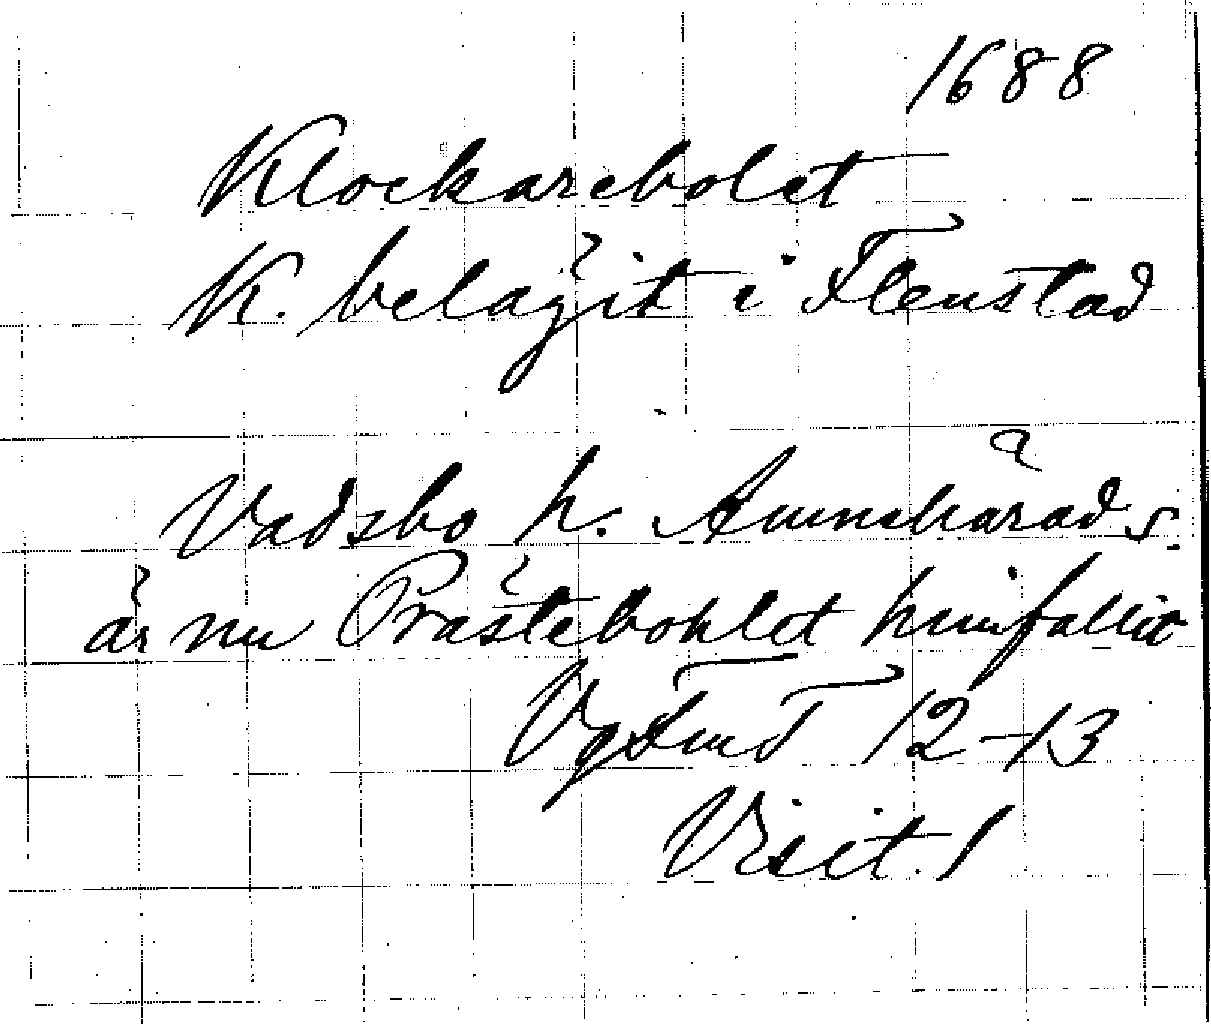 1688
Klockarebolet
K. belägit i Flenstad
Vadsbo h. Amnehärad s.
är nu Prästebohlet hemfallit
VgFmT 12-13
Visit. 1